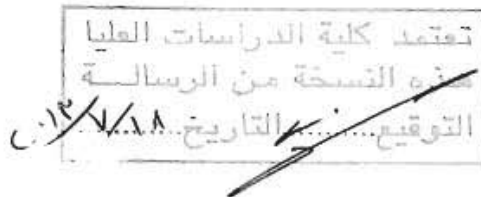 تعتمد كلية الدراسات العليا
هذه النسخة من الرسالــة
التوقيع.........التاريخ ١٨/٧/٢٠١٣